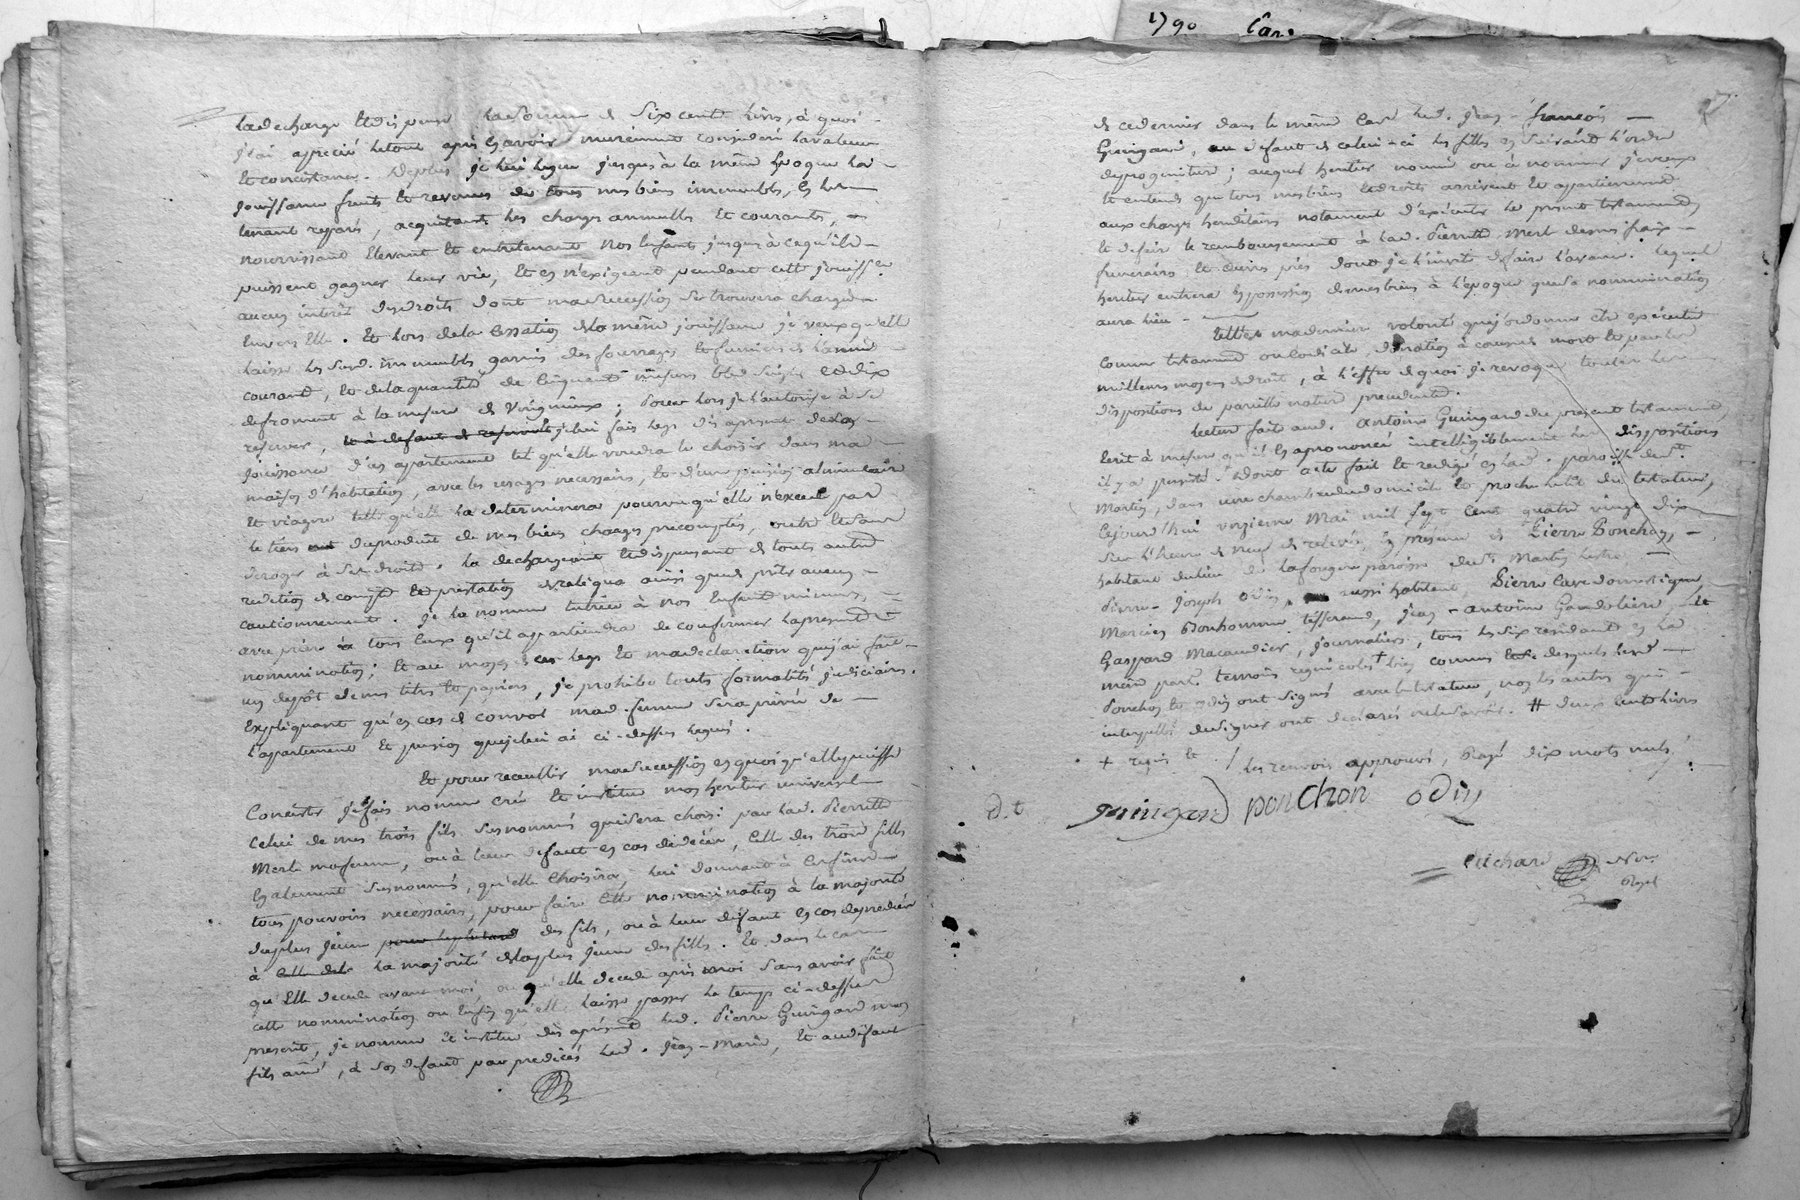 la decharge et dispense la somme de six cent livres, à quoi
j'ai apprecié le tout après en avoir murement consideré la valeur
et consistance. Deplus je lui legue jusques à la même epoque la
jouissance fruits et revenus de tous mes biens immeubles, en les
tenant reparés, acquitant les charges annuelles et courantes,
nourrissant elevant et entretenant nos enfants jusques à ce qu'ils
puissent gagner leur vie, et en n'exigeant pendant cette jouissce
aucun intérêt des droits dont ma succession se trouvera chargée
envers elle. Et lors de la cessation de la même jouissance je veux qu'elle
laisse les susd. immeubles garnis des fourrages et fumiers de l'année
courante, et de la quantité de cinquante mesures bled seigle et dix
de froment à la mesure de ; pour lors je l'autorise à se
reserver, et à defaut de reserve je lui fais legs dès à present de la
jouissance d'un apartement tel qu'elle voudra le choisir dans ma
maison d'habitation, avec les usages necessaires, et d'une pension alimentaire
et viagere telle qu'elle la determinera pourvu qu'elle n'excede pas
le tiers du produit de mes biens charges precomptés, outre et sans
deroger à ses droits. la dechargeant et dispensant de toute autre
reddition de compte et prestation de reliqua ainsi que de prêter aucun
cautionnement. Je la nomme tutrice à nos enfants mineurs,
avec priere à tous ceux qu'il appartiendra de confirmer la presente
nommination; et au moyen de ces legs et ma declaration que j'ai fait
un depôt de mes titres et papiers, je prohibe toutes formalités judiciaires.
Expliquant qu'en cas de convol mad. femme sera privée de
l'apartement et pension que je lui ai ci-dessus legués.
Et pour receuillir ma succession en quoi qu'elle puisse
consister je fais nomme crée et institue mon heritier universel
celui de mes trois fils susnommés qui sera choisi par lad. Pierrette
Merle ma femme, ou à leur defaut en cas de decès, celle des trois filles
egalement susnommés, qu'elle choisira, lui donnant à cet effet
tous pouvoirs necessaires, pour faire cette nommination à la majorité
du plus jeune pour des fils, ou à leur defaut en cas de predecès
à celle de la majorité de la plus jeune des filles. Et dans le cas
qu'elle decede avant moi ou qu'elle decede après moi sans avoir fait
cette nommination ou enfin qu'elle laisse passer le temps ci-dessus
prescrit, je nomme et institue dès àprésent led. Pierre Guingard mon
fils ainé, à son defaut par predecès led. Jean-Marie, et au defaut
1790 Car.
de ce dernier dans le même cas led. Jean-françois
Guingard, au defaut de celui-ci les filles en suivant l'ordre
de progeniture; auquel heritier nommé ou à nommer je veux
et entends que tous mes biens et droits arrivent et apartiennent
aux charges hereditaires notament d'executer le present testament,
et de faire le remboursement à lad. Pierrette Merle de mes fraix
funeraires et œuvres pies dont je l'invite de faire l'avance. lequel
heritier entrera en possession de mes biens à l'epoque que sa nommination
aura lieu.
telle est ma derniere volonté que j'ordonne etre executée
comme testament ou codicile donation à cause de mort et par les
meilleurs moyens de droit, à l'effet de quoi je revoque toutes les
dispositions de pareille nature precedentes.
Lecture faite aud. Antoine Guingard du present testament
ecrit à mesure qu'il en a prononcé intelligiblement les dispositions
il y a persisté. Dont acte fait et redigé en lad. paroisse de St.
Martin, dans une chambre du domicile et proche le lit du testateur,
cejourd'hui onzieme Mai mil sept cent quatre vingt dix
sur l'heure de neuf de relevée, en presence de Pierre Ponchon,
habitant du lieu de la fougere paroisse de St. Martin
Pierre-Joseph Odin, aussi habitant, Pierre Cave domestique,
Marcien Bonhomme tisserand, Jean-Antoine Gaudoliere, et
Gaspard Macaudier, journaliers, tous les six residants en la
même parss. temoins reguicoles + connus desquels led.
Ponchon et Odin ont signé avec le testateur, non les autres qui
interpellés de signer ont declaré ne le savoir. # deux cents livres
+ requis et / les renvois approuvés, Rayé dix mots nuls.
D. t. guingard ponchon odin
Richard Nore
Royal